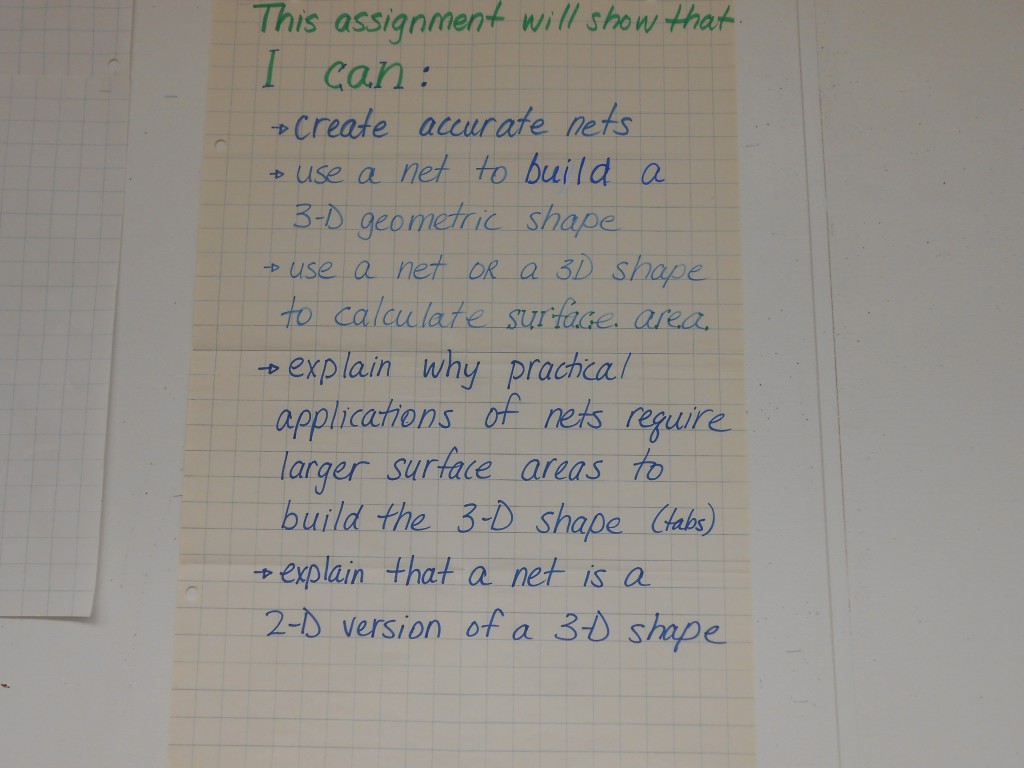 This assignment will show that
I can:
→ create accurate nets
→ use a net to build a
3-D geometric shape
→ use a net OR a 3D shape
to calculate surface area.
→ explain why practical
applications of nets require
larger surface areas to
build the 3-D shape (tabs)
→ explain that a net is a
2-D version of a 3-D shape